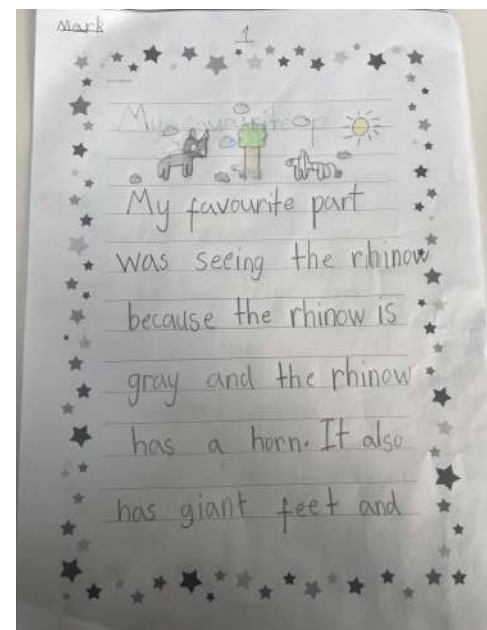 Mark
1
My favourite p
My favourite part
was seeing the rhinow
because the rhinow is
gray and the rhinow
has a horn. It also
has giant feet and